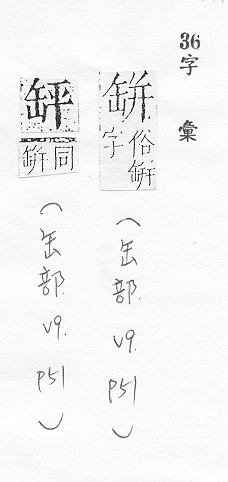 36字彙
缾俗缾
字
(缶部. v9. p51)
同缾
(缶部. v9. p51)